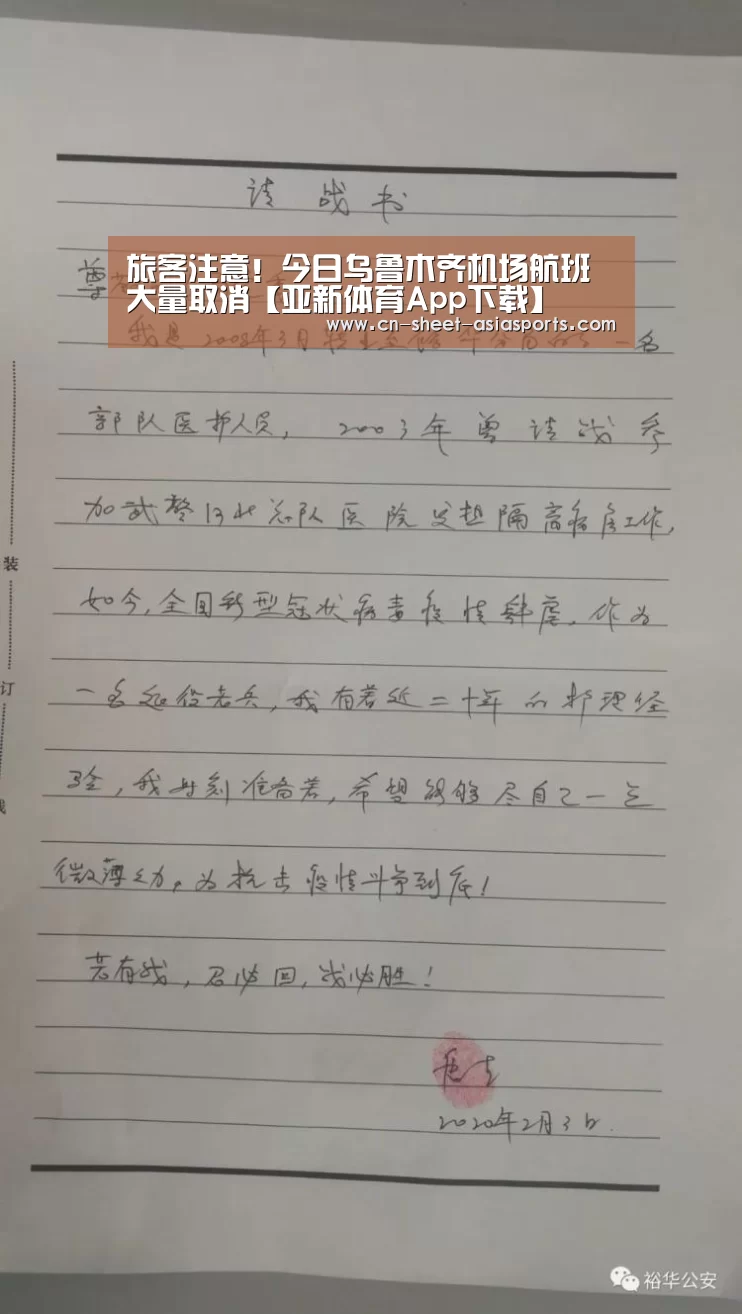 请战书
旅客注意！今日乌鲁木齐机场航班
大量取消【亚新体育App下载】
www.cn-sheet-asiasports.com
尊
我是2008年3月转业至 一名
部队医护人员，2003年曾请战参
加武警河北总队医院发热隔离病房工作，
如今，全国新型冠状病毒疫情肆虐，作为
一名退役老兵，我有着近二十年的护理经
验，我时刻准备着，希望能够尽自己一点
微薄之力，为抗击疫情斗争到底！
若有战，召必回，战必胜！
2020年2月3日.
装
订
线
裕华公安